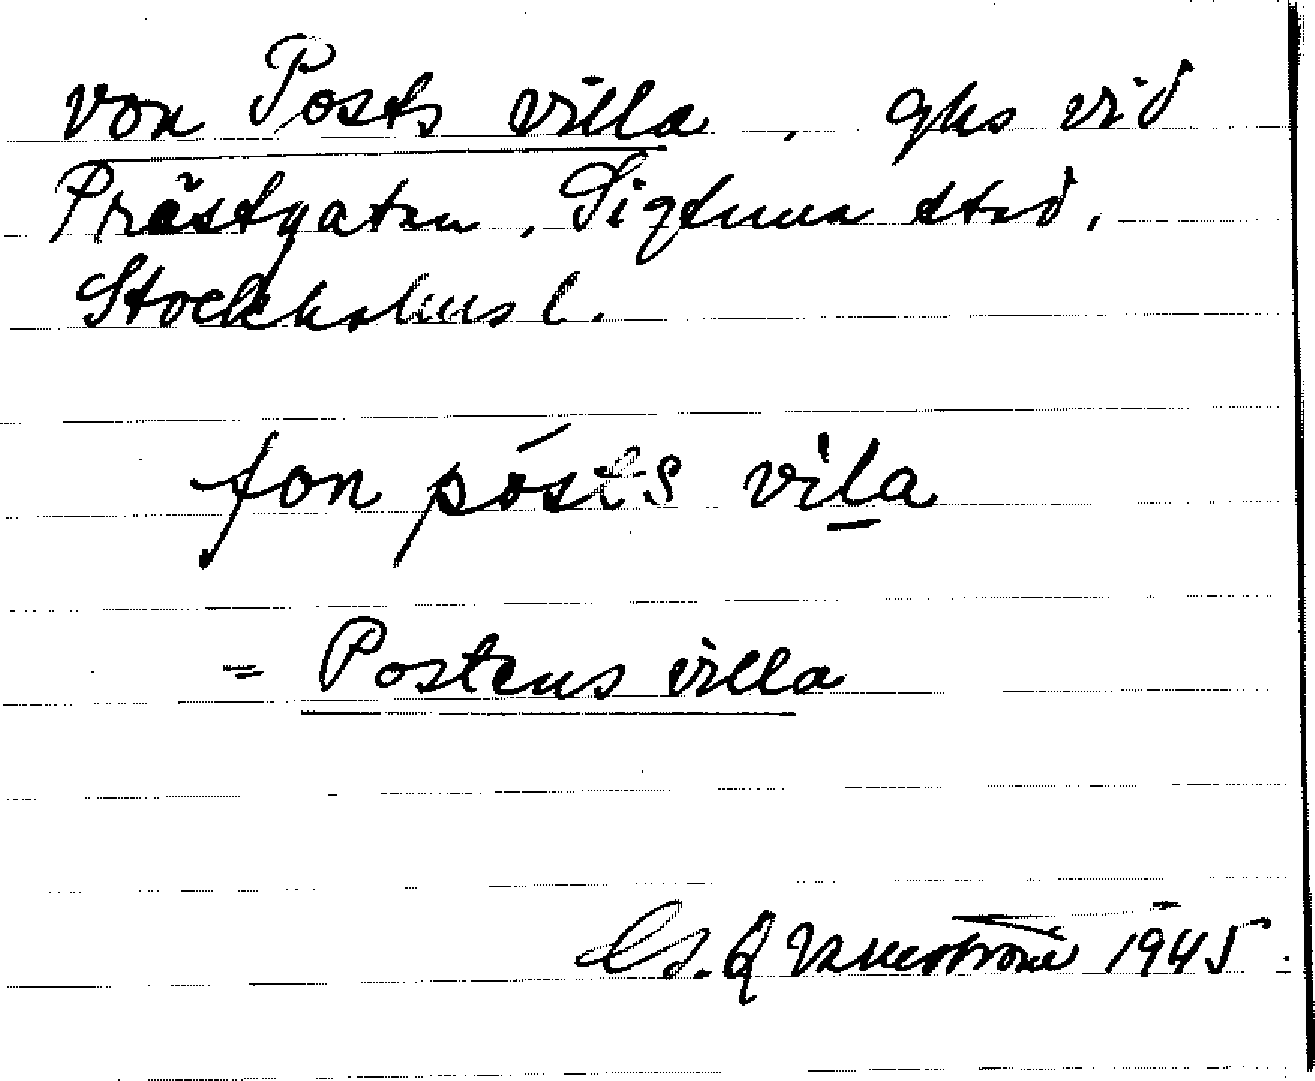 von Posts villa, ghs vid
Prästgatan, Sigtuna stad,
Stockholms l.
fon pósts vila
= Postens villa
1945